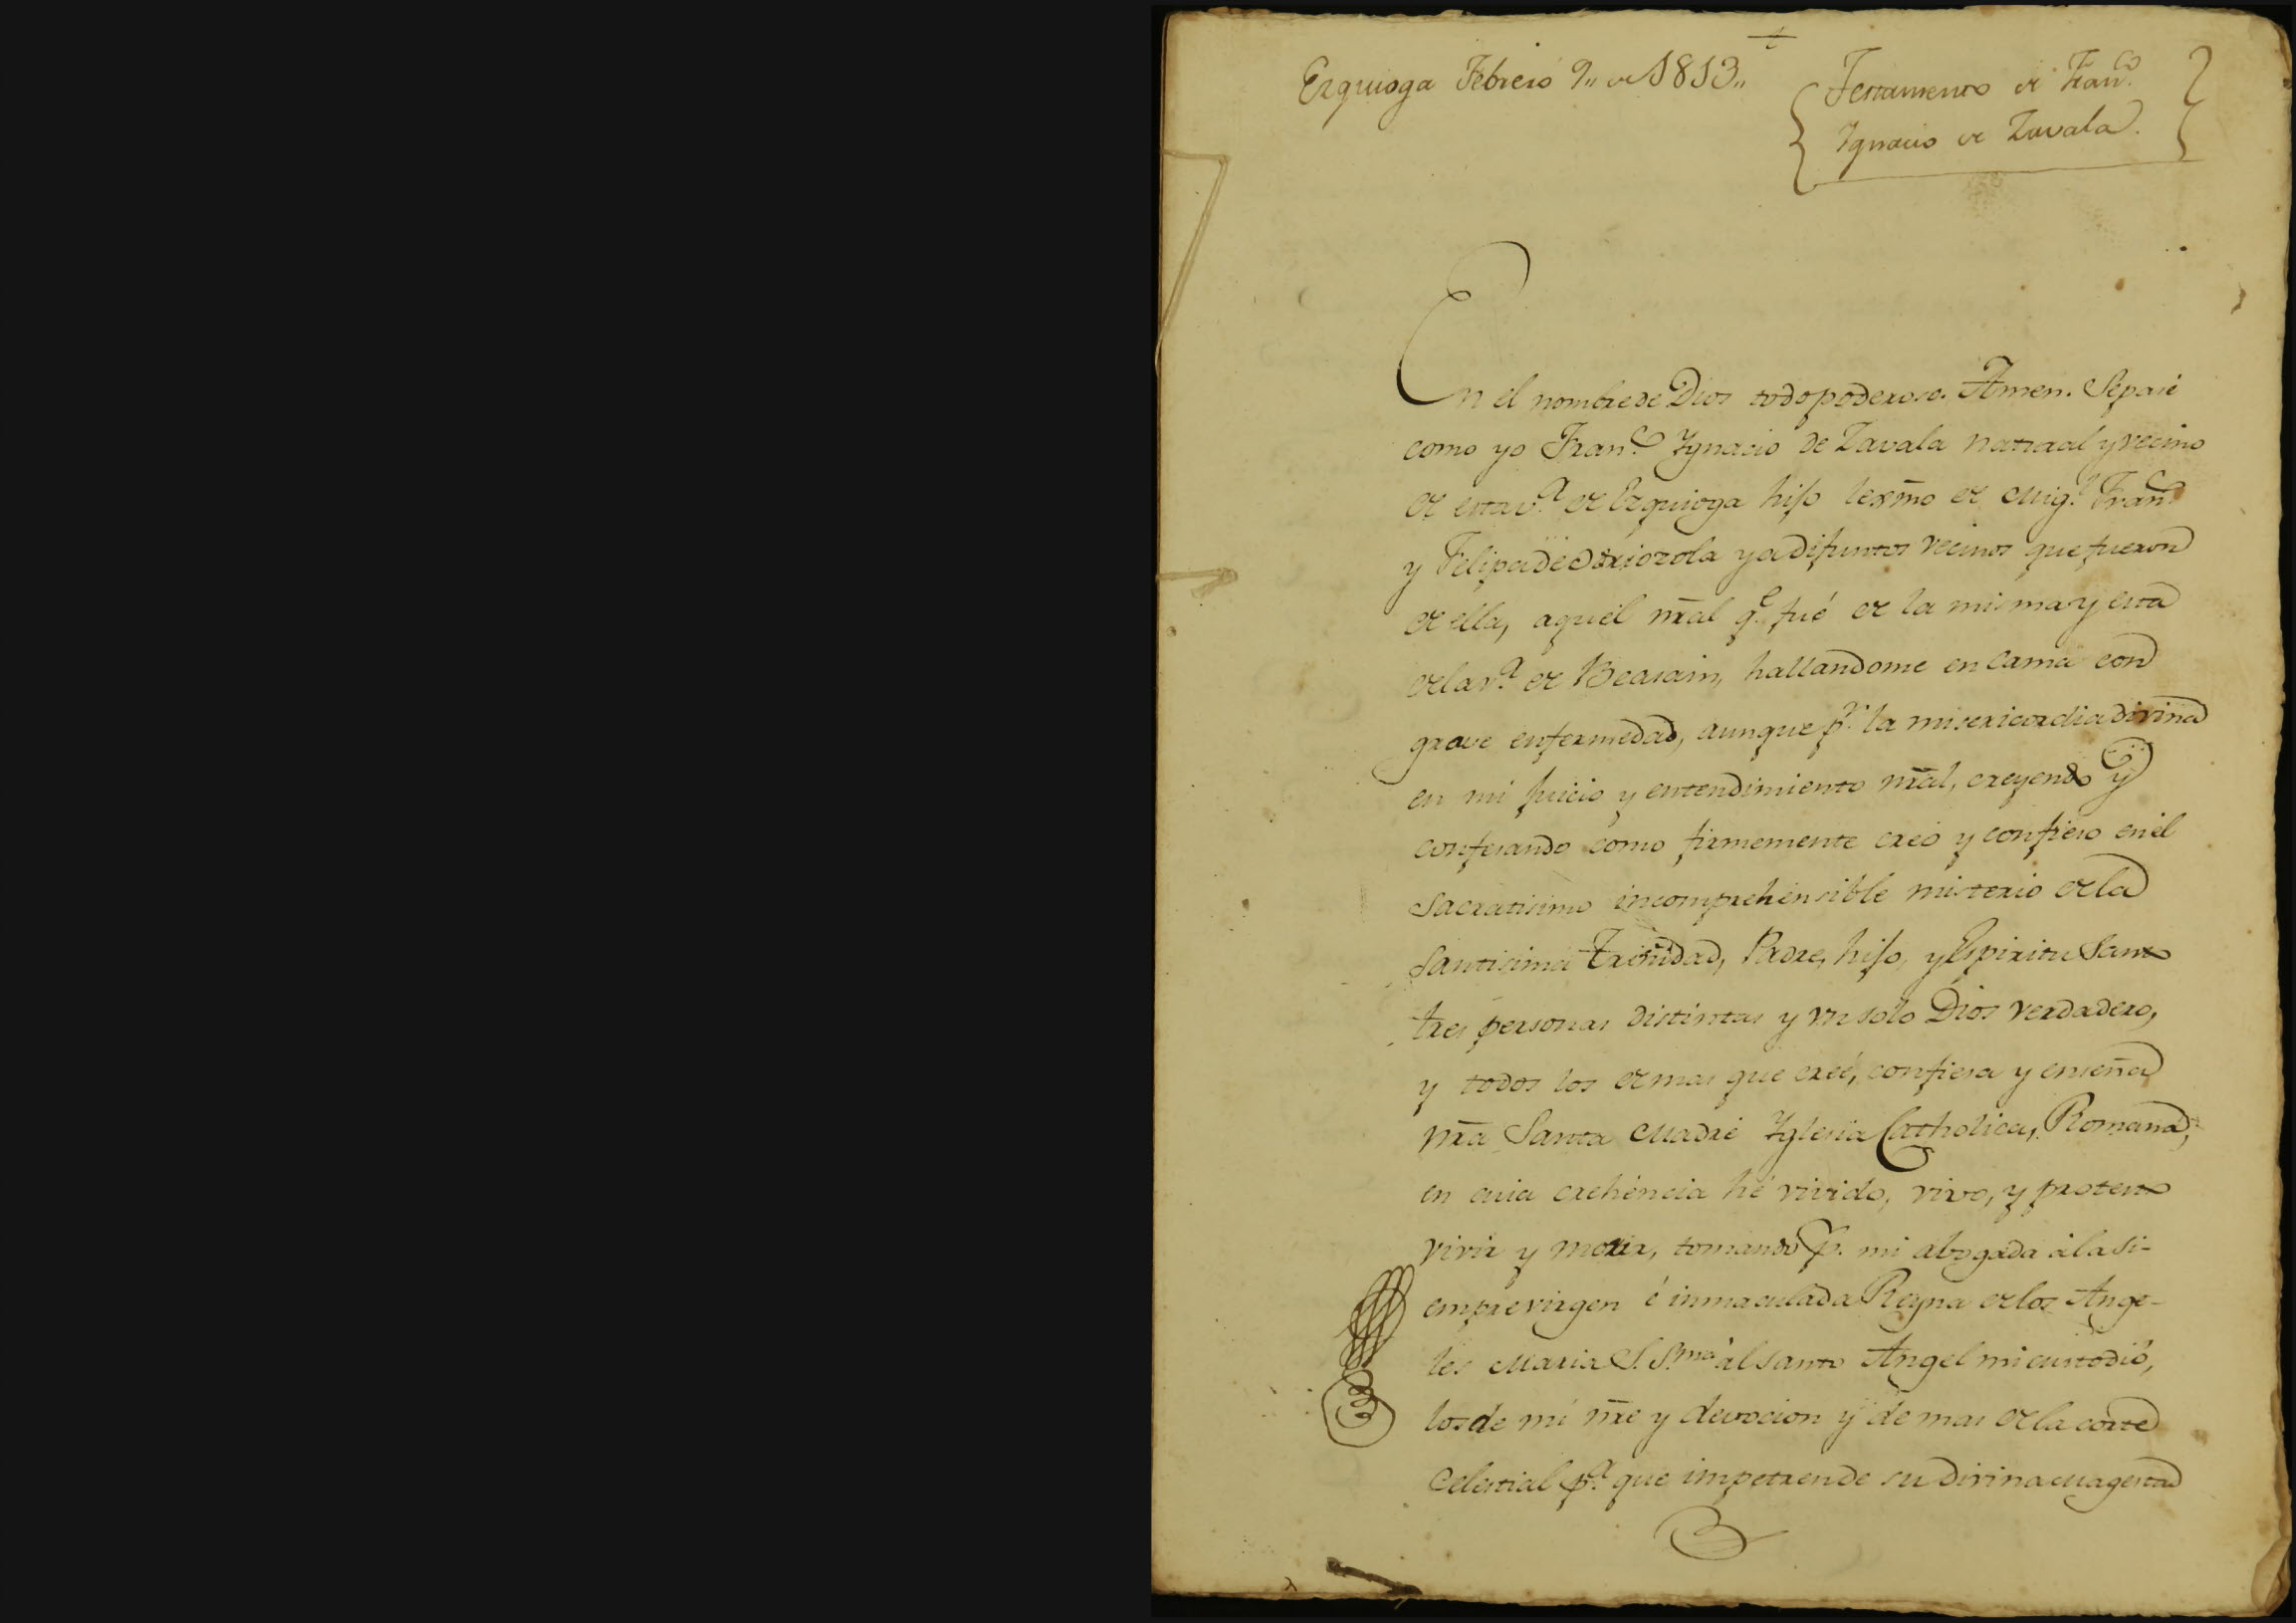 Ezquioga Febrero 9,, de 1813,,
Testamento de Fran.co
Ygnacio de Zavala.
En el nombre de Dios todopoderoso. Amen. Sepase
como yo Fran.co Ygnacio de Zavala natural y vecino
de esta v.a de Ezquioga hijo lexmo de Mig.l Fran.co
y Felipa de Oriozola ya difuntos vecinos que fueron
de ella, aquel nral q.e fué de la misma y esta
de la v.a de Beasain, hallandome en cama con
grave enfermedad, aunque p.r la misericordia divina
en mi juicio y entendimiento nral, creyendo y
confesando como firmemente creo y confieso en el
Sacratisimo incomprehensible misterio de la
Santisima Trinidad, Padre, hijo, y Espiritu Santo
tres personas distintas y un solo Dios verdadero,
y todos los demas que creé, confiesa y enseña
nra Santa Madre Yglesia Catholica, Romana,
en cuia crehencia hé vivido, vivo, y protesto
vivir y morir, tomando p.r mi abogada á la si-
empre virgen é inmaculada Reyna de los Ange-
les Maria S. S.ma al santo Angel mi custodio,
los de mi nre y devocion y demas de la corte
Celestial p.a que impetren de su divina Magestad